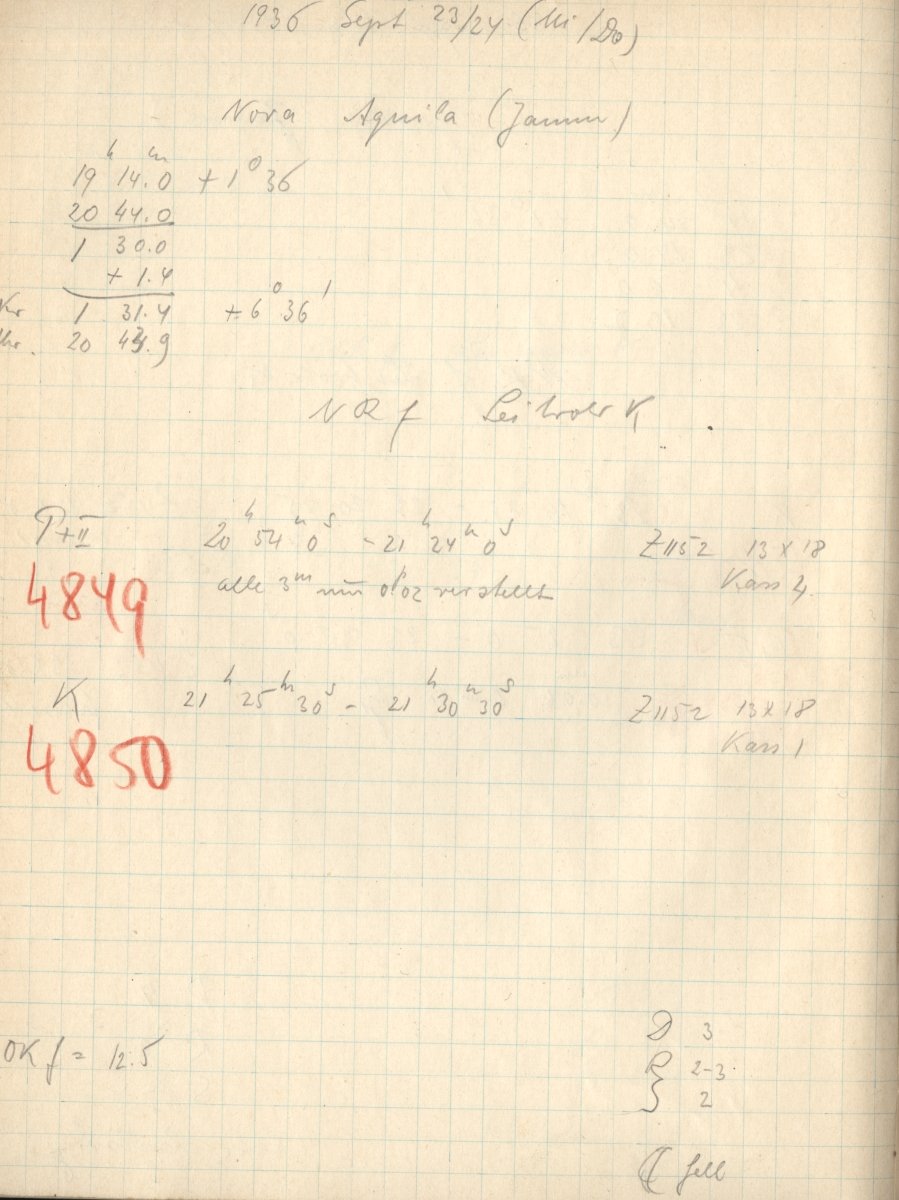 1936 Sept 23/24 (Mi/Do)
Nova Aquila (Tamm)
19ʰ 14.0ᵐ +1° 36
20 44.0
1 30.0
+ 1.4
Kr 1 31.4 +6° 36'
Uhr. 20 43.9
NRf Leitrohr K
P+II 20ʰ 54ᵐ 0ˢ - 21ʰ 24ᵐ 0ˢ Z1152 13 x 18
4849 alle 3ᵐ um 0.02 verstellt Kass 4
K 21ʰ 25ᵐ 30ˢ - 21ʰ 30ᵐ 30ˢ Z1152 13 x 18
4850 Kass 1
D 3
2-3
OK f = 12.5
2
hell